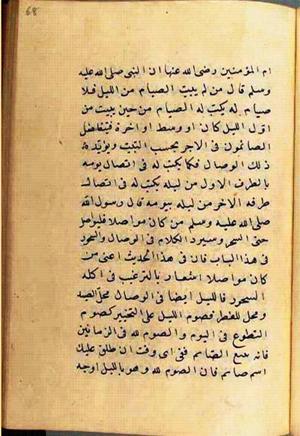 68
ام المؤمنين رضى الله عنها ان النبى صلى الله عليه
وسلم قال من لم يبيت الصيام من الليل فلا
صيام له يكتب له الصيام من حين يبيت من
اول الليل كان او وسط او آخره فيتفاضل
الصائمون فى الاجر بحسب التبييت ويؤيد
ذلك الوصال فكما يكتب له فى اتصال يومه
بالطرف الاول من ليله يكتب له فى اتصال
طرفه الآخر من ليله بيومه قال رسول الله
صلى الله عليه وسلم من كان مواصلا فليواصل
حتى السحر وسيرد الكلام فى الوصال والسحور
فى هذا الباب فان فى هذا الحديث اعنى من
كان مواصلا اشعارا بالترغيب فى اكلة
السحور فالليل ايضا فى الوصال محل للصيام
ومحل للفطر فصوم الليل على التخيير كصوم
التطوع فى اليوم والصوم لله فى الزمانين
فانه يتبع الصائم ففى اى وقت ان طلق عليك
اسم صائم فان الصوم لله وهو بالليل اوجه